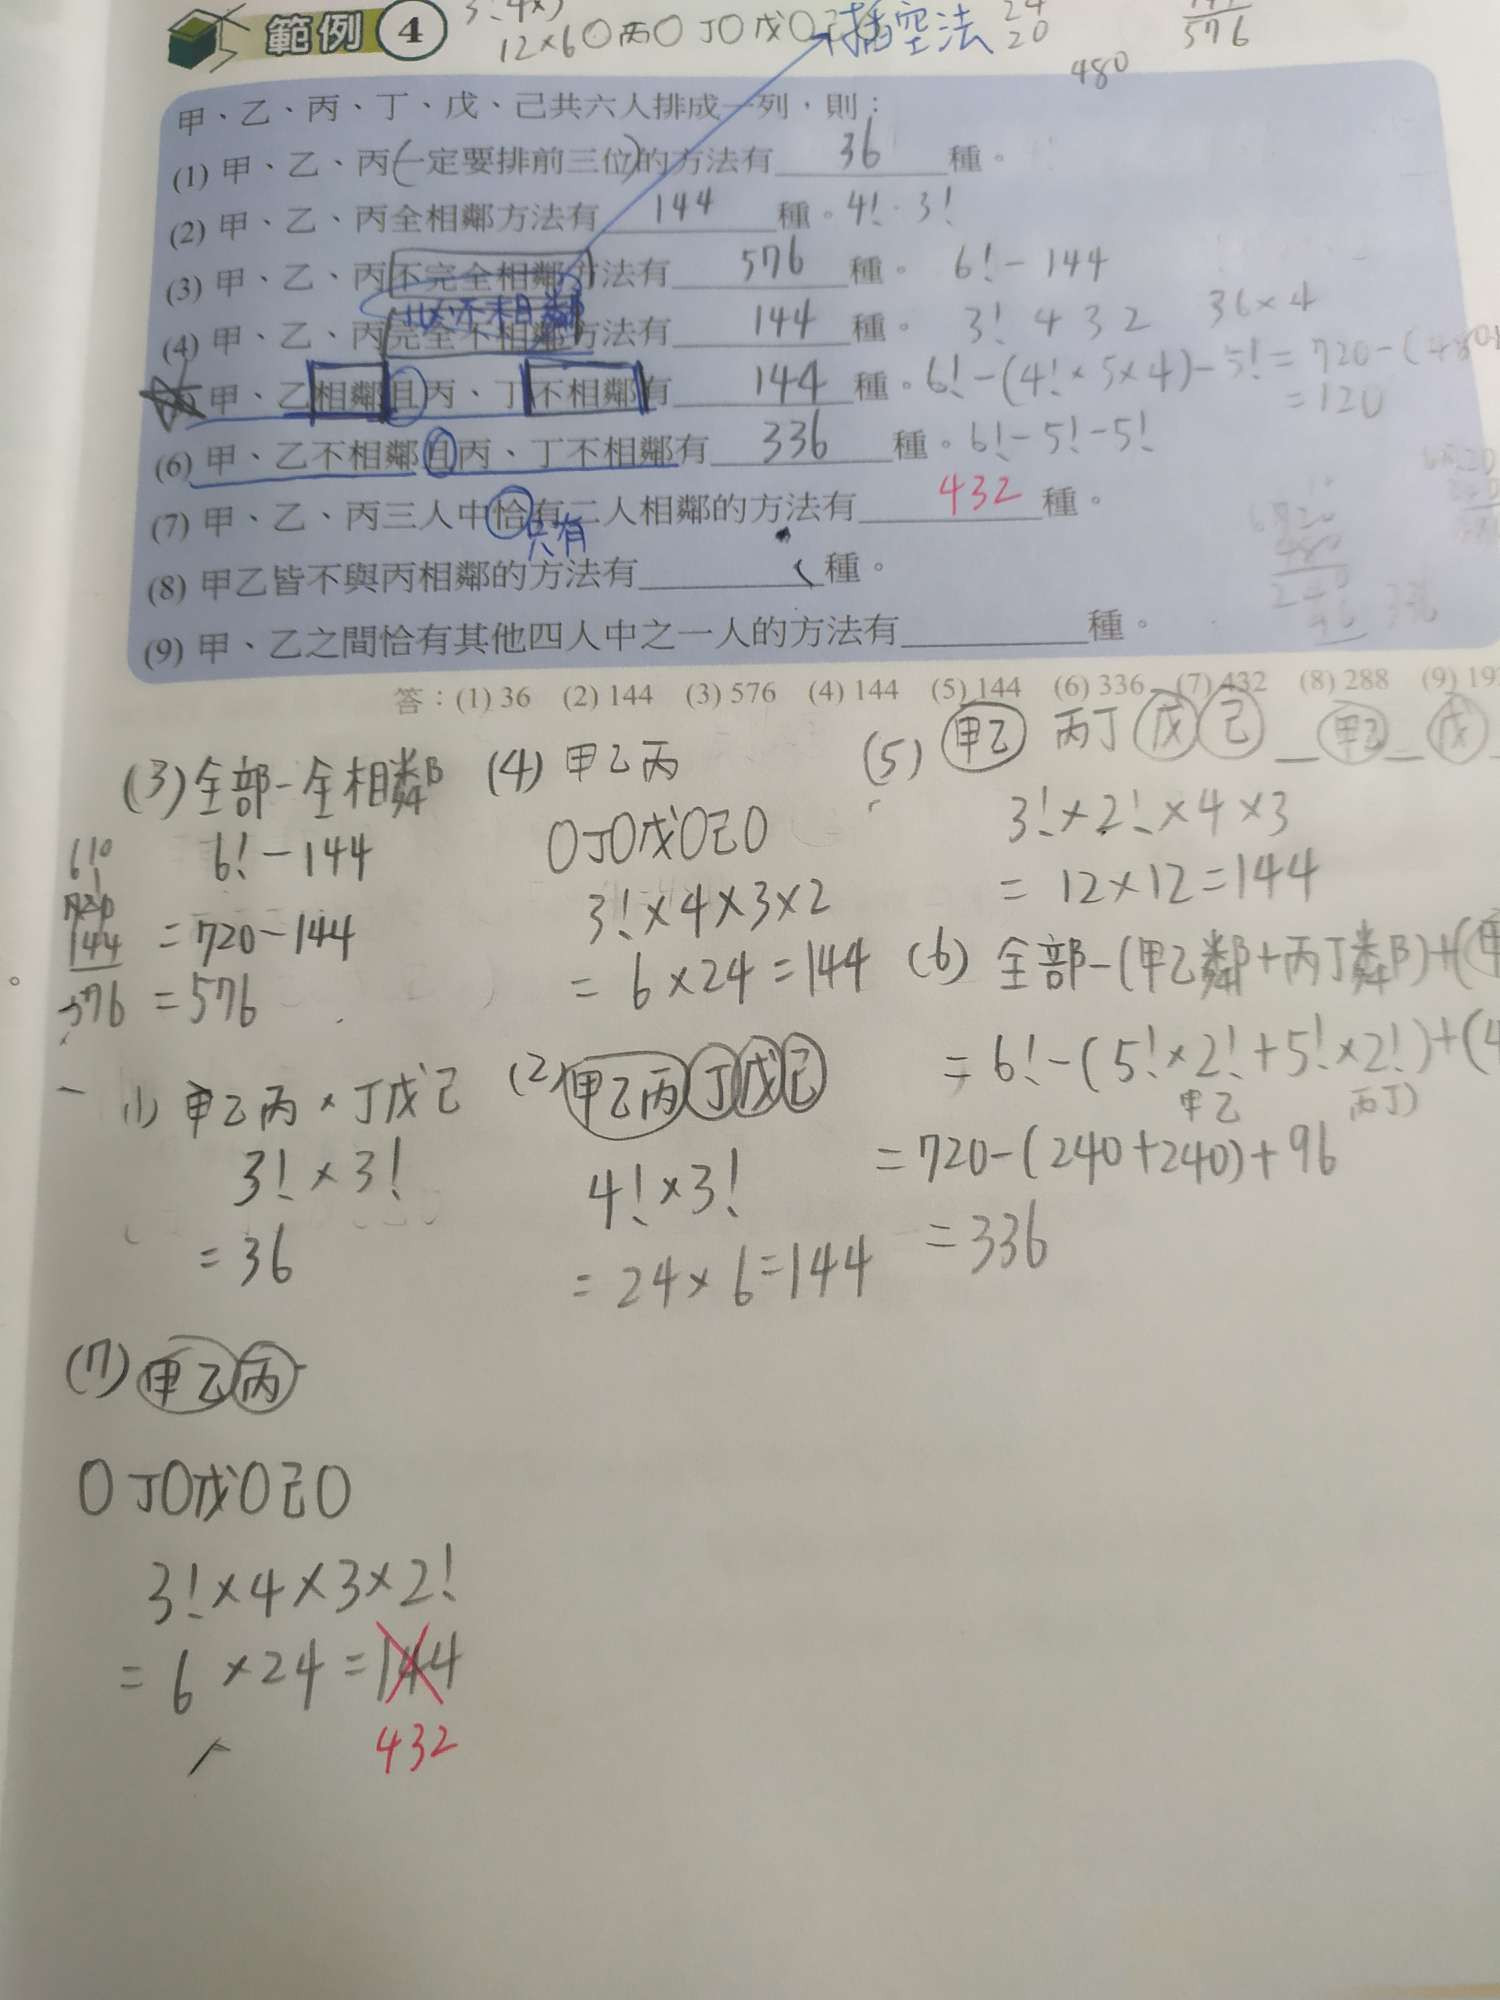 範例 4
12×6〇丙〇丁〇戊〇 插空法
24
20
576
480
甲、乙、丙、丁、戊、己共六人排成一列，則：
(1) 甲、乙、丙(一定要排前三位)的方法有 36 種。
(2) 甲、乙、丙全相鄰方法有 144 種。4!·3!
(3) 甲、乙、丙不完全相鄰方法有 576 種。 6!-144
不相鄰
(4) 甲、乙、丙完全不相鄰方法有 144 種。 3! 4 3 2 36×4
甲、乙相鄰且丙、丁不相鄰有 144 種。6!-(4!×5×4)-5!=720-(480
=120
(6) 甲、乙不相鄰且丙、丁不相鄰有 336 種。6!-5!-5!
(7) 甲、乙、丙三人中恰有二人相鄰的方法有 432 種。
只有
(8) 甲乙皆不與丙相鄰的方法有 種。
(9) 甲、乙之間恰有其他四人中之一人的方法有 種。
336
答：(1) 36 (2) 144 (3) 576 (4) 144 (5) 144 (6) 336 (7) 432 (8) 288 (9) 19
(3) 全部-全相鄰
6!-144
=720-144
=576
720
144
576
(4) 甲乙丙
〇丁〇戊〇己〇
3!×4×3×2
=6×24=144
(5) 甲乙 丙丁 戊 己 _ 甲乙 _ 戊 _
3!×2!×4×3
=12×12=144
(6) 全部-(甲乙鄰+丙丁鄰)+(甲
=6!-(5!×2!+5!×2!)+(4
甲乙 丙丁)
=720-(240+240)+96
=336
(1) 甲乙丙×丁戊己
3!×3!
=36
(2) 甲乙丙 丁 戊 己
4!×3!
=24×6=144
(7) 甲乙 丙
〇丁〇戊〇己〇
3!×4×3×2!
=6×24=144
432